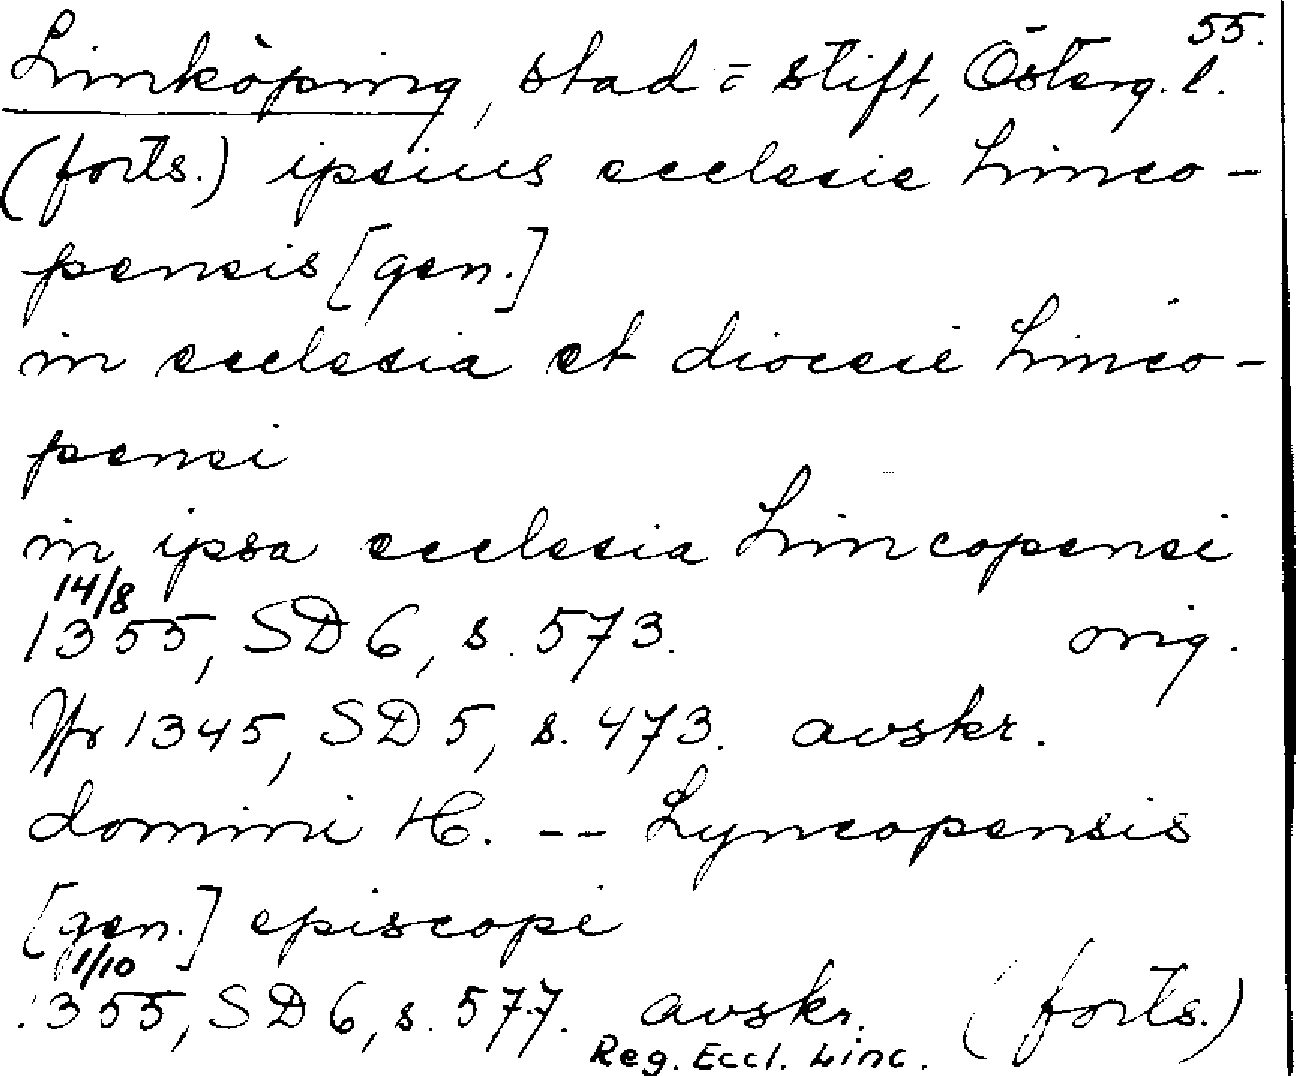 55.
Linköping, stad = stift, Österg. l.
(forts.) ipsius ecclesie Linco-
pensis [gen.]
in ecclesia et diocesi Linco-
pensi
in ipsa ecclesia Lincopensi
14/8
1355, SD 6, s. 573. orig.
1345, SD 5, s. 473. avskr.
domini H. -- Lyncopensis
[gen.] episcopi
1/10
1355, SD 6, s. 577. avskr. (forts.)
Reg. Eccl. Linc.